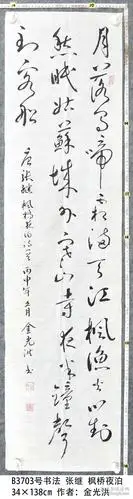 月落乌啼霜满天江枫渔火对
愁眠姑苏城外寒山寺夜半钟声
到客船
唐张继枫桥夜泊诗一首丙申年五月金光洪书
B3703号书法 张继 枫桥夜泊
34×138cm 作者：金光洪